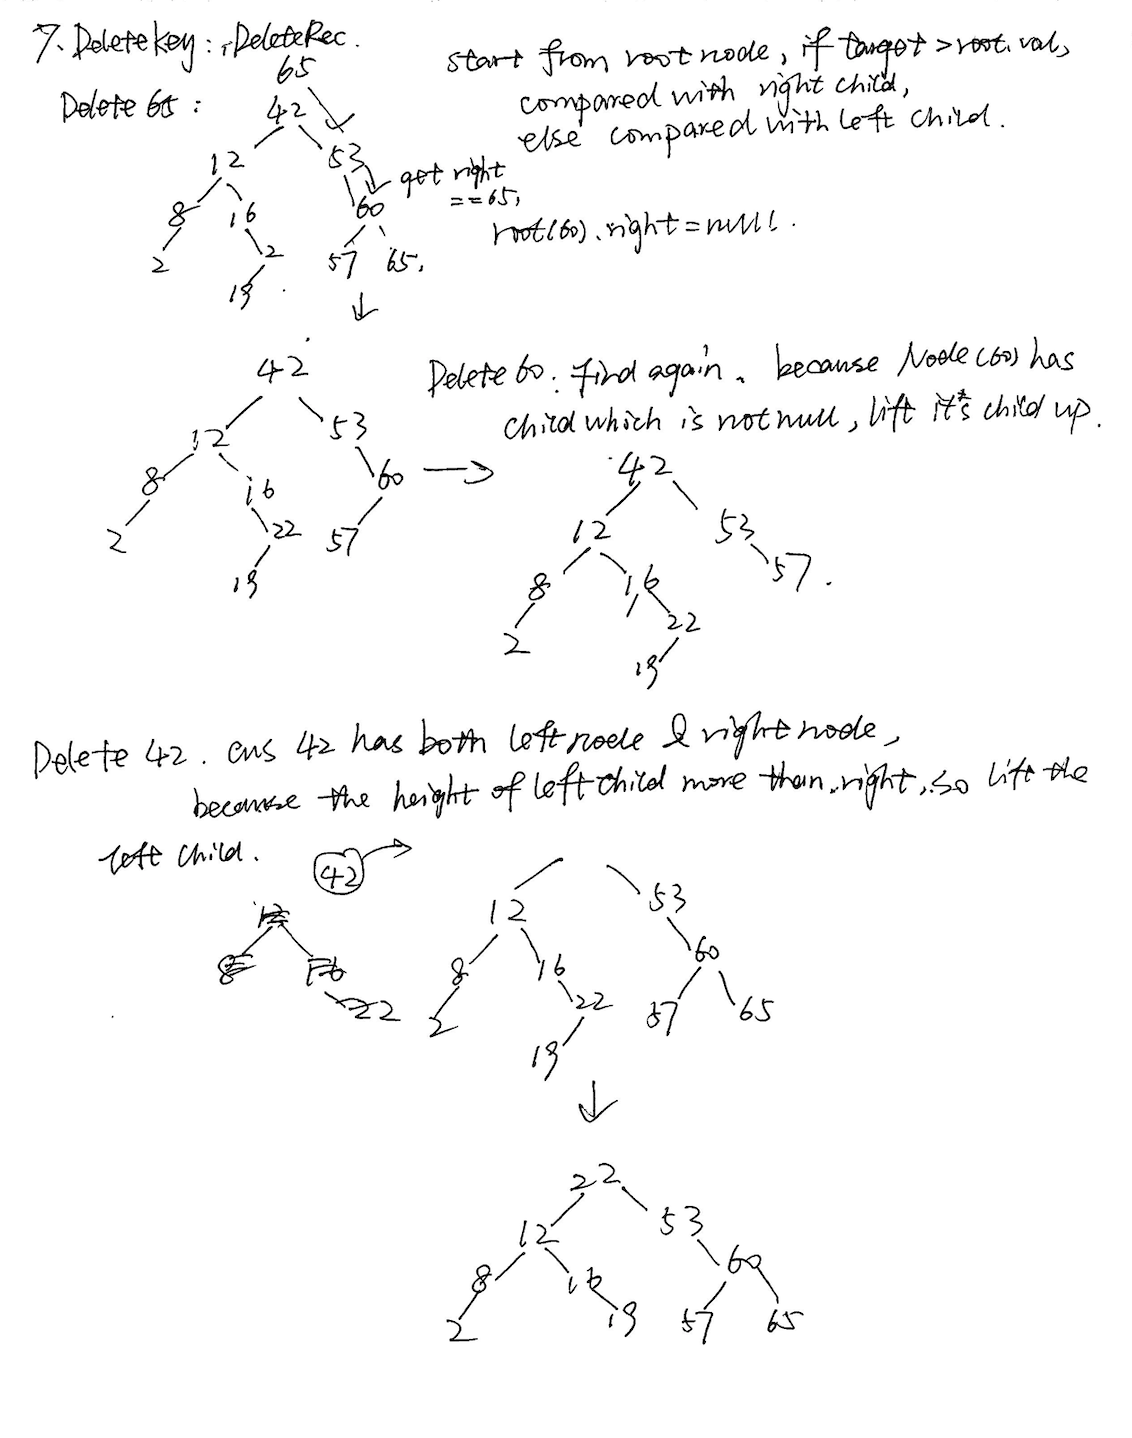 7. Deletekey: DeleteRec.
65
start from root node, if target > root.val,
compared with right child,
else compared with left child.
Delete 65:
42
12 53
get right
==65,
8 16 60
root(60).right=null.
2 2 57 65.
19
42
Delete 60: find again. because Node(60) has
child which is not null, lift it's child up.
12 53
8 16 60
2 22 57
19
42
12 53
8 16 57.
2 22
19
Delete 42. cus 42 has both left node & right node,
because the height of left child more than right, so lift the
left child.
42
12 53
12
8 16
22
8 16 60
2 22 57 65
19
22
12 53
8 16 60
2 19 57 65